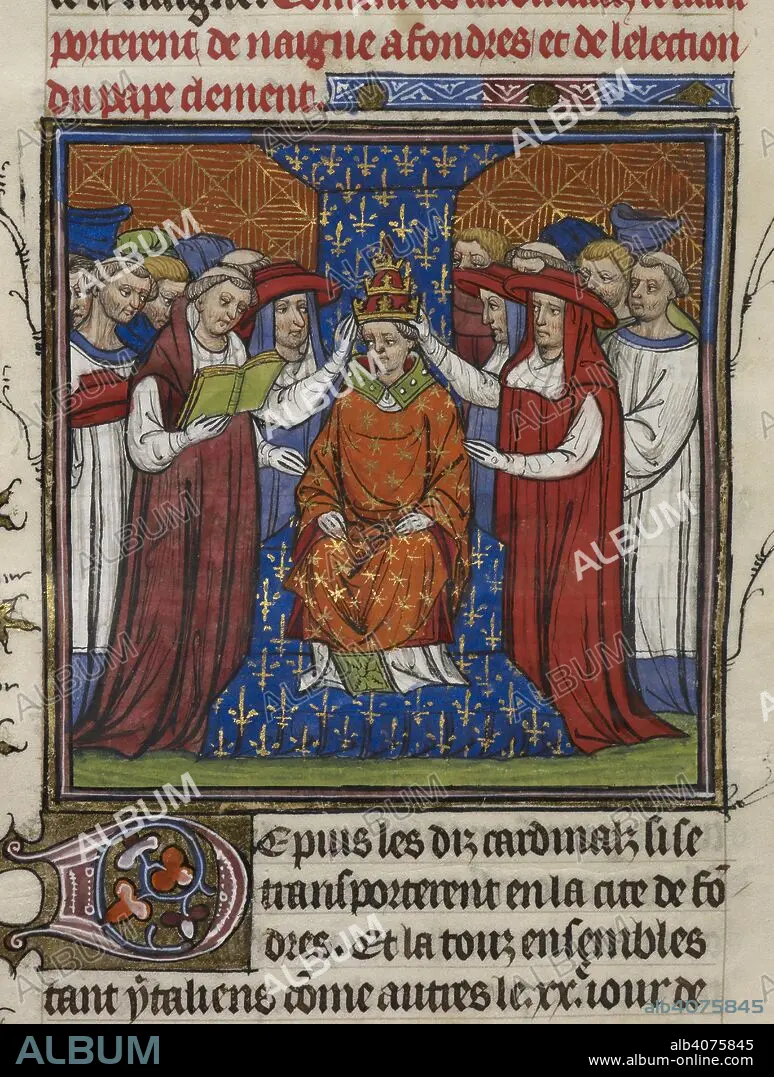 porterent de naigne a fondres et de lelection
du pape clement.
Depuis les diz cardinalz si se
transporterent en la cite de fō
dres. Et la touz ensembles
tant ytaliens cōme autres le .xx.e iour de
ALBUM
alb4075845
ALBUM
alb4075845
www.album-online.com